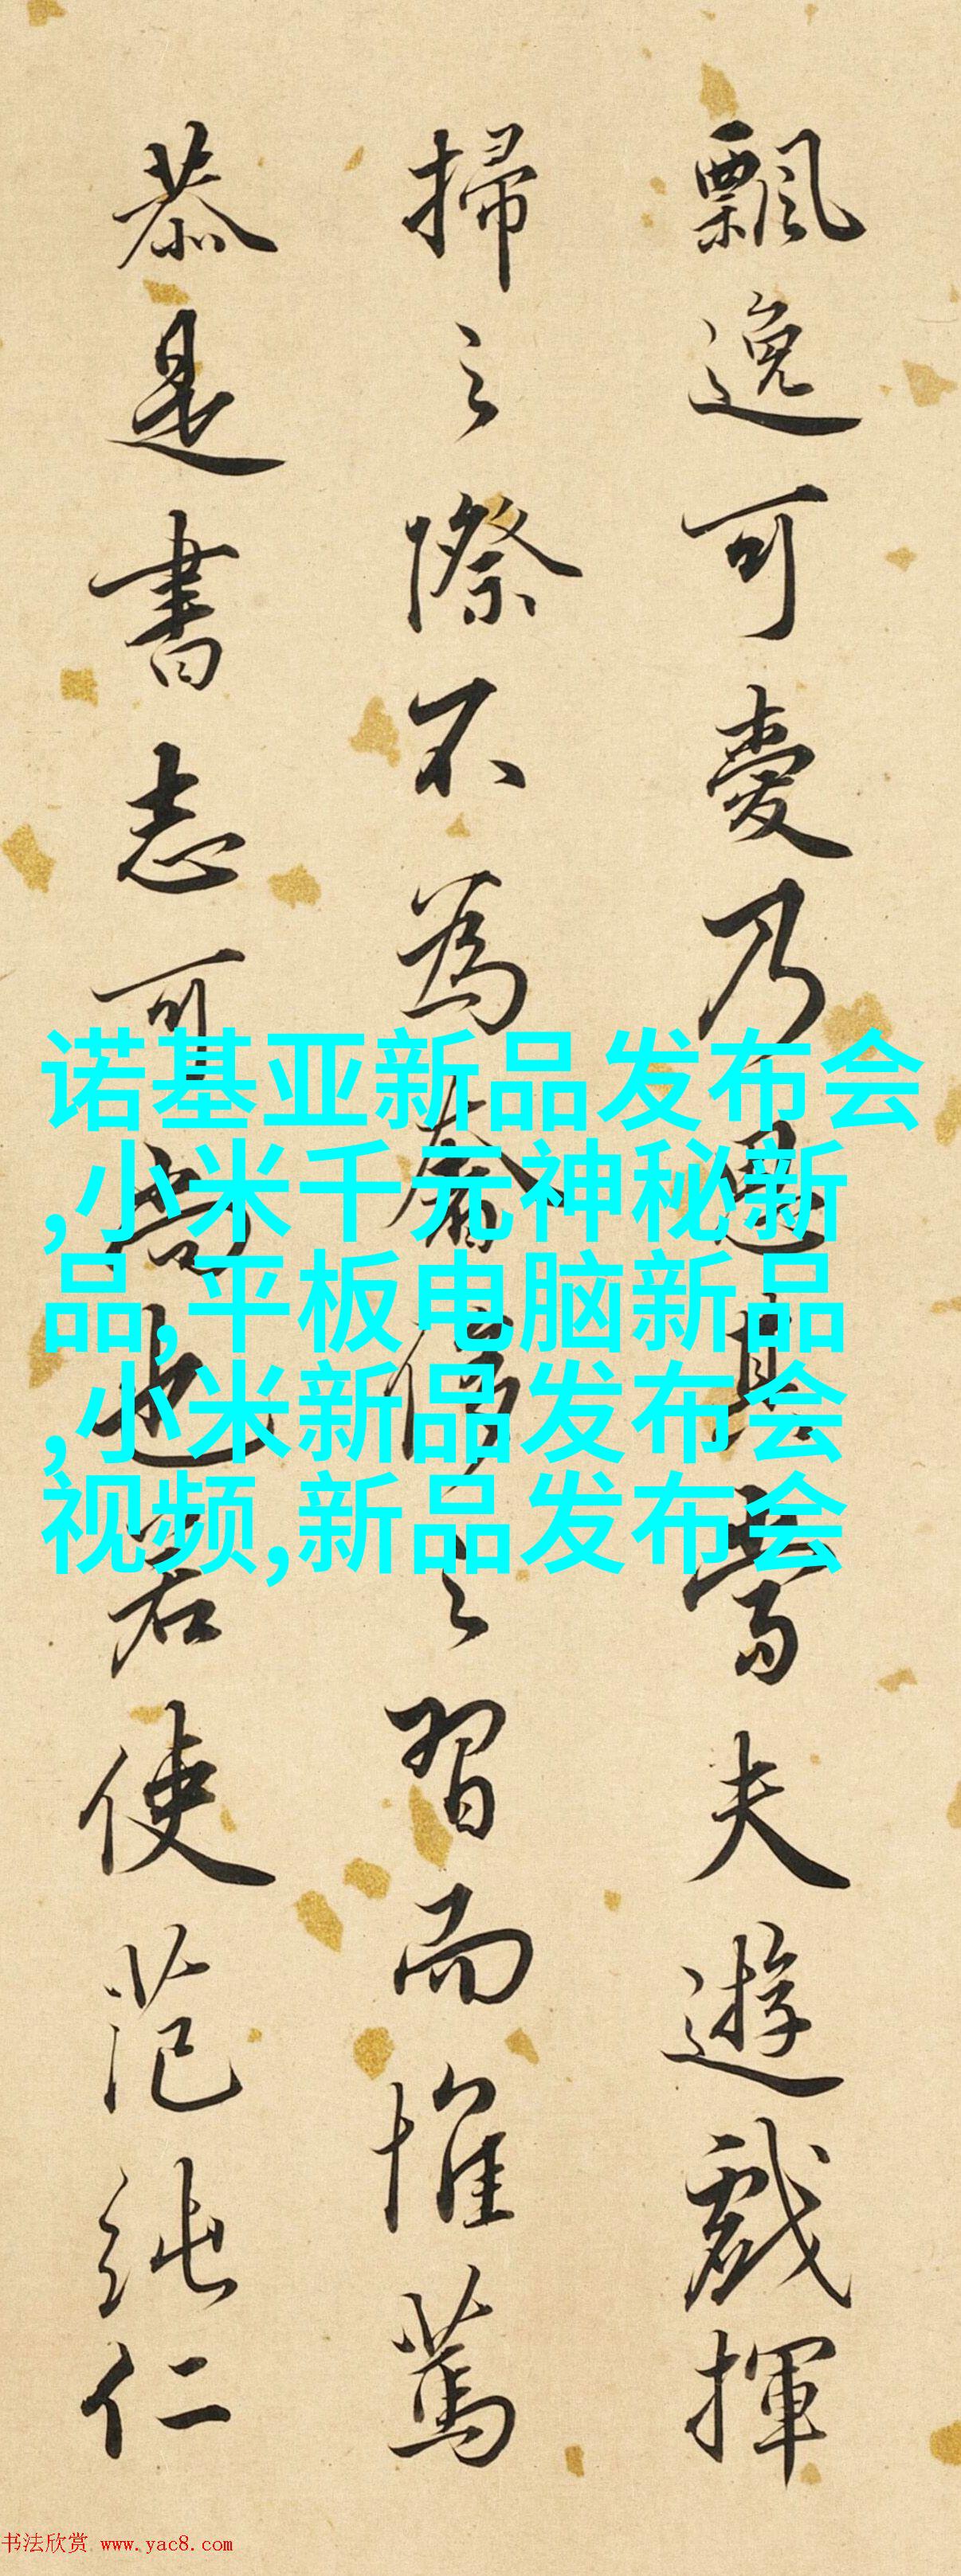 飄逸可愛乃見其當夫遊戲揮
掃之際不為奢侈之習而惟篤
恭是書志可尚也若使范純仁
诺基亚新品发布会
,小米千元神秘新
品,平板电脑新品
,小米新品发布会
视频,新品发布会
书法欣赏 www.yac8.com